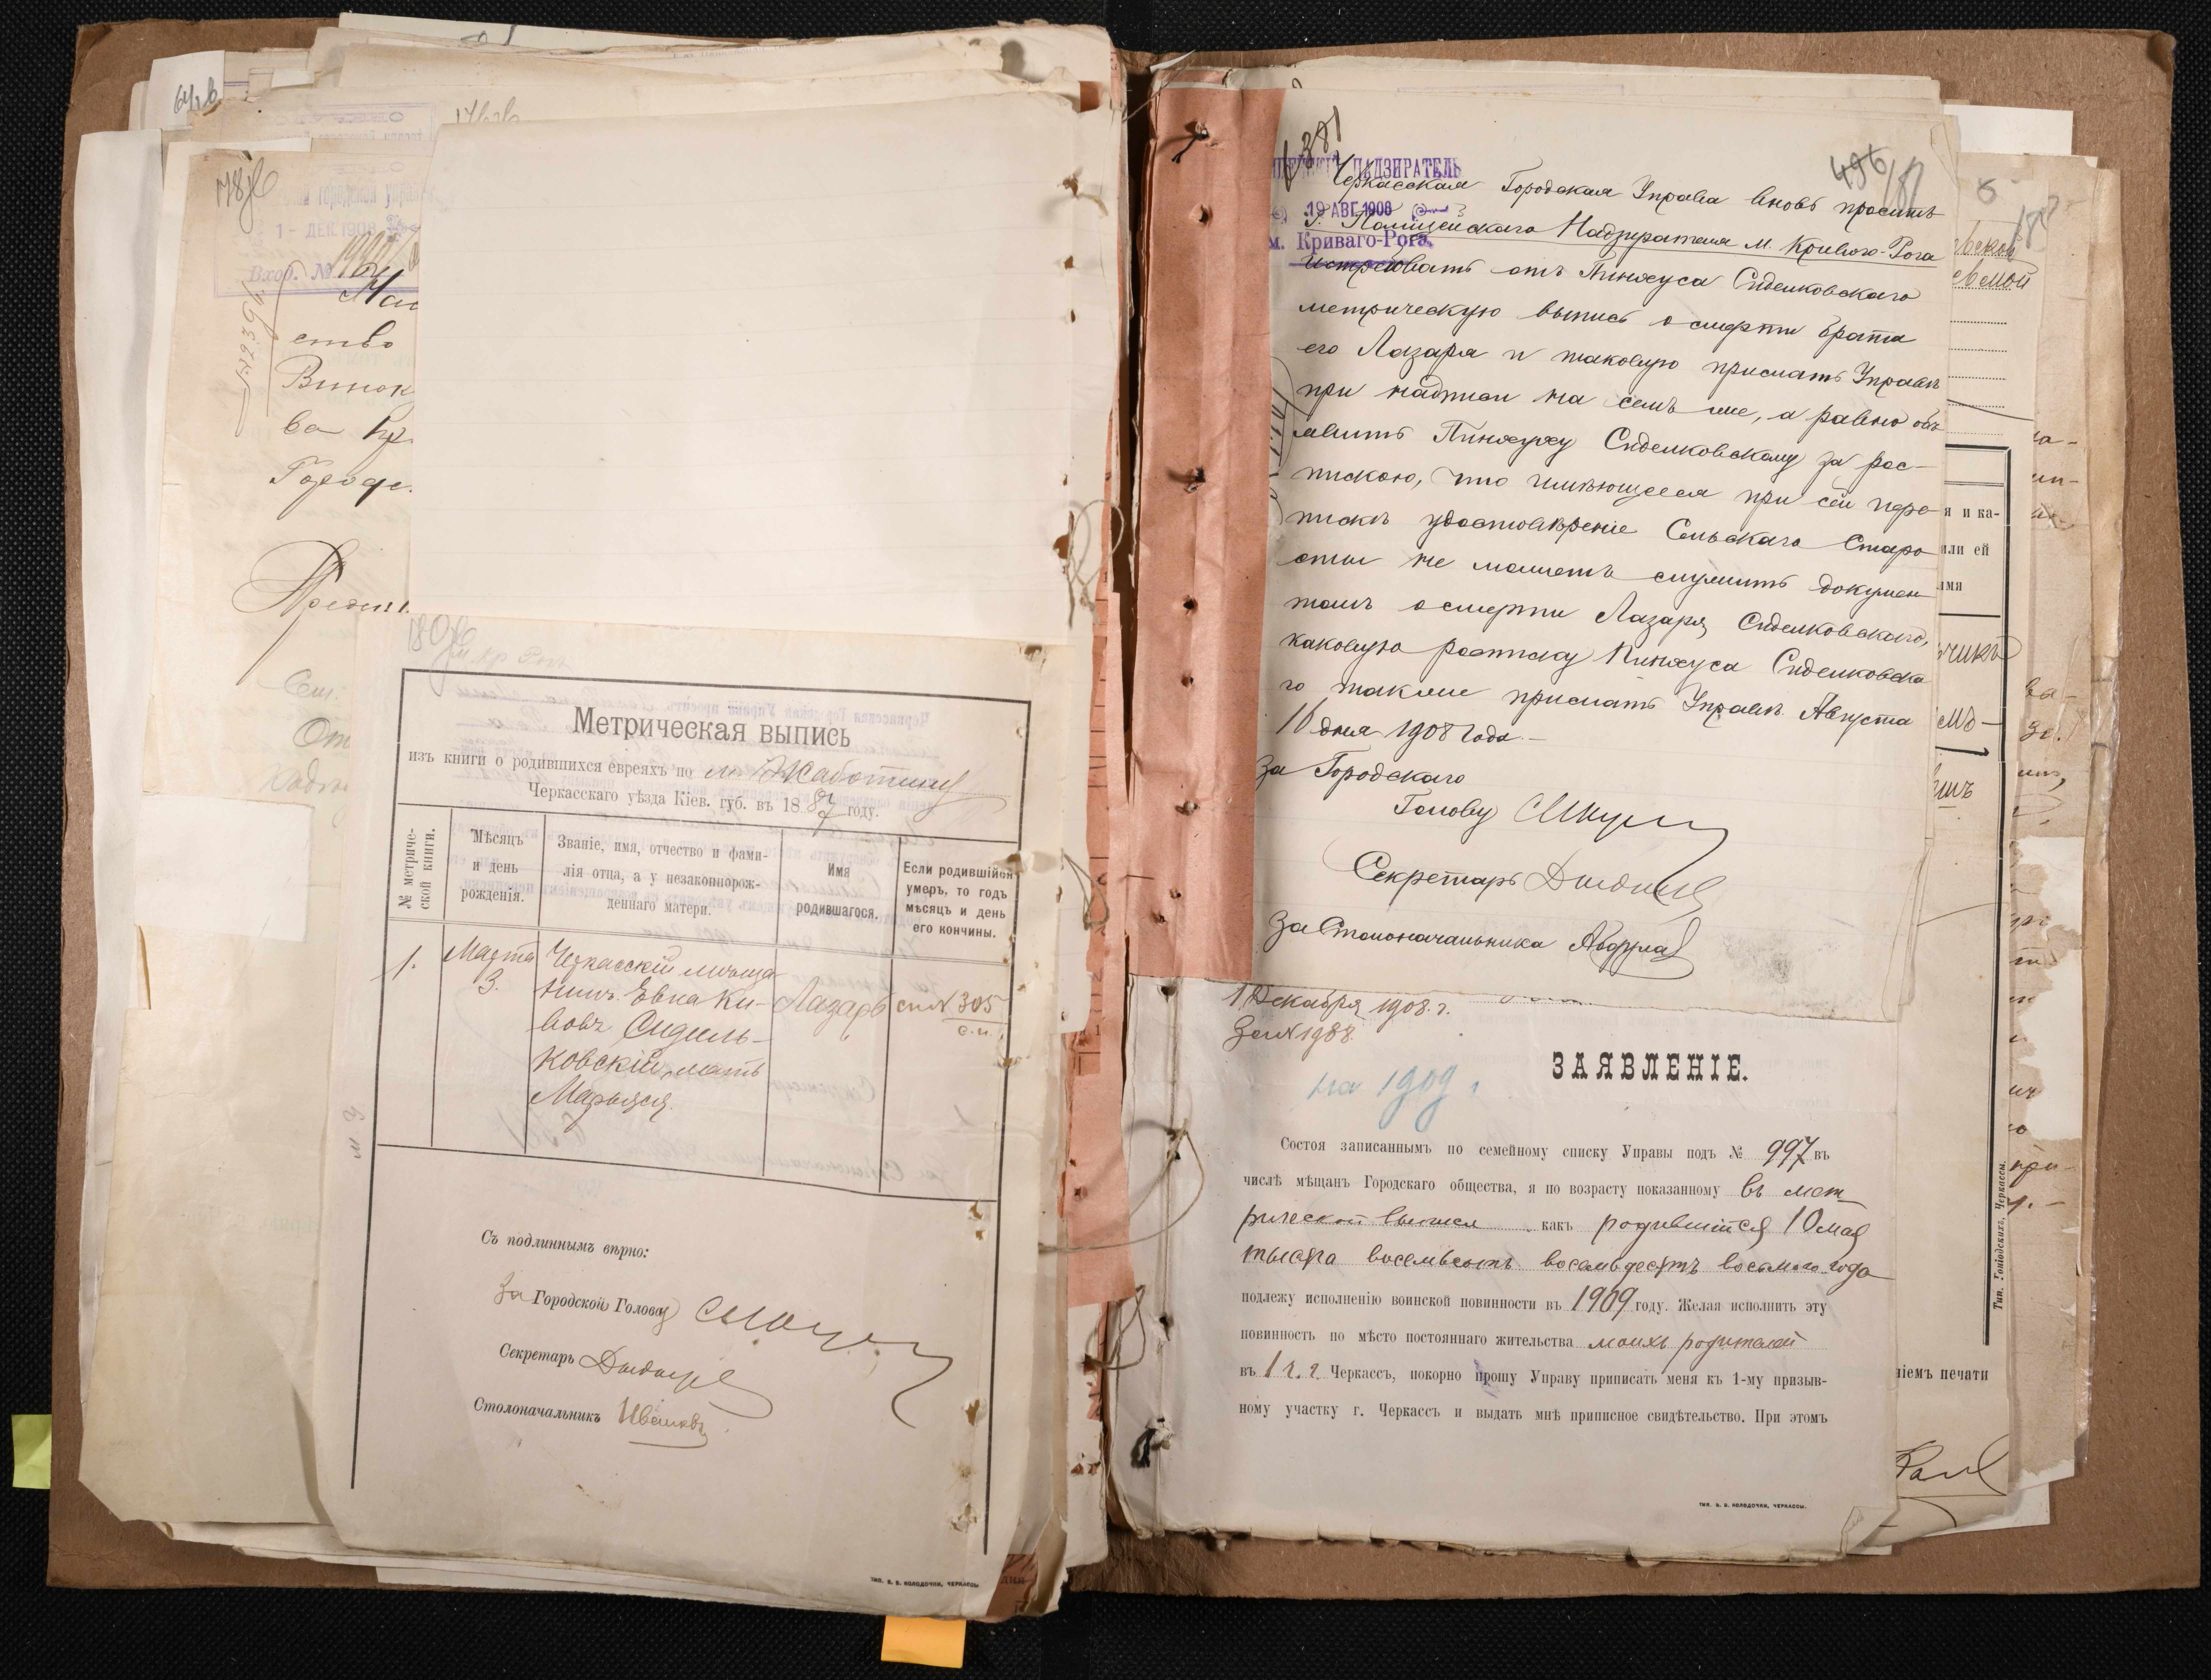 64 в
176 зв
178 зв
1 - ДЕК 1908
Вход. №
ство
Винок
ва
Городс.
180 зв
Метрическая выпись
изъ книги о родившихся евреяхъ по м. Жаботину
Черкасскаго уѣзда Кіев. губ. въ 1887 году.
№ метриче-
ской книги.
Мѣсяцъ
и день
рожденія.
Званіе, имя, отчество и фами-
лія отца, а у незаконнорож-
деннаго матери.
Имя
родившагося.
Если родившійся
умеръ, то годъ
мѣсяцъ и день
его кончины.
1.
Марта
3.
Черкасскій мѣща
нинъ Евна Ки-
вовъ Сидель-
ковскій, мать
Марьяся.
Лазарь
сп № 305
с.и.
Съ подлиннымъ вѣрно:
За Городской Голова
Секретарь
Столоначальникъ
ТИП. В. В. КОЛОДОЧКИ, ЧЕРКАССЫ
381
496
181
НАДЗИРАТЕЛЬ
19 АВГ. 1908
м. Криваго-Рога.
Черкасская Городская Управа вновь проситъ
Г. Полицейскаго Надзирателя м. Кривого-Рога
истребовать отъ Пинхуса Сиделковскаго
метрическую выпись о смерти брата
его Лазаря и таковую прислать Управѣ
при надписи на семъ же, а равно объ
явить Пинхусу Сиделковскому за рос-
пискою, что имѣющееся при сей пере
пискѣ удостовѣреніе Сельскаго Старо
сты не можетъ служить докумен
томъ о смерти Лазаря Сиделковскаго,
каковую росписку Пинхуса Сиделковска
го также прислать Управѣ. Августа
16 дня 1908 года.-
За Городского
Голову
Секретарь
За Столоначальника
1 Декабря 1908. г.
За № 1988.
на 1909 г
ЗАЯВЛЕНІЕ.
Состоя записаннымъ по семейному списку Управы подъ № 997 въ
числѣ мѣщанъ Городскаго общества, я по возрасту показанному въ мет
рической выписи какъ родившійся 10 мая
тысяча восемьсотъ восемьдесятъ восьмого года
подлежу исполненію воинской повинности въ 1909 году. Желая исполнить эту
повинность по мѣсто постояннаго жительства моихъ родителей
въ 1 ч. г. Черкассъ, покорно прошу Управу приписать меня къ 1-му призыв-
ному участку г. Черкассъ и выдать мнѣ приписное свидѣтельство. При этомъ
ТИП. В. В. КОЛОДОЧКИ, ЧЕРКАССЫ.
я и ка-
или ей
имя
Тип. Гоніодскихъ, Черкассы.
ніемъ печати